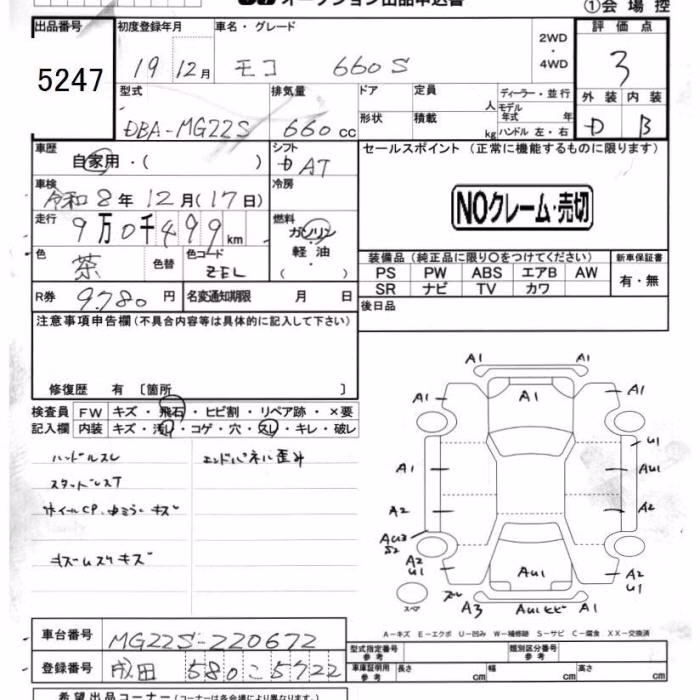 オークション出品申込書
①会場控
出品番号 初度登録年月 車名・グレード 2WD・4WD 評価点
5247 19 12月 モコ 660S 3
型式 排気量 ドア 定員 人 ディーラー・並行 外装 内装
DBA-MG22S 660cc 形状 積載 kg モデル年式 年 D B
ハンドル 左・右
車歴 自家用・( ) シフト AT セールスポイント (正常に機能するものに限ります)
車検 令和8年12月(17日) 冷房
NOクレーム・売切
走行 9万0千499km 燃料 ガソリン・軽油
色 茶 色替 色コード ZEL
装備品 (純正品に限り○をつけてください) 新車保証書
PS PW ABS エアB AW 有・無
SR ナビ TV カワ
R券 9780円 名変通知期限 月 日 後日品
注意事項申告欄 (不具合内容等は具体的に記入して下さい)
修復歴 有 〔箇所 〕
検査員 FW キズ・飛石・ヒビ割・リペア跡・×要
記入欄 内装 キズ・汚レ・コゲ・穴・スレ・キレ・破レ
ハンドルスレ エンドパネル歪み
スタッドレスT
キズ
キズ
A1 A1
A1 A1 A1
U1
A1 AU1
A2 A2
AU3
S2
A2 A2
U1 AU1 U1
スペア A3 AU1ヒビ A1
A-キズ E-エクボ U-凹み W-補修跡 S-サビ C-腐食 XX-交換済
車台番号 MG22S-220672
型式指定番号 参考 類別区分番号 参考
登録番号 成田 580 こ 5722
車庫証明用 参考 長さ cm 幅 cm 高さ cm
希望出品コーナー (コーナーは各会場により異なります。)